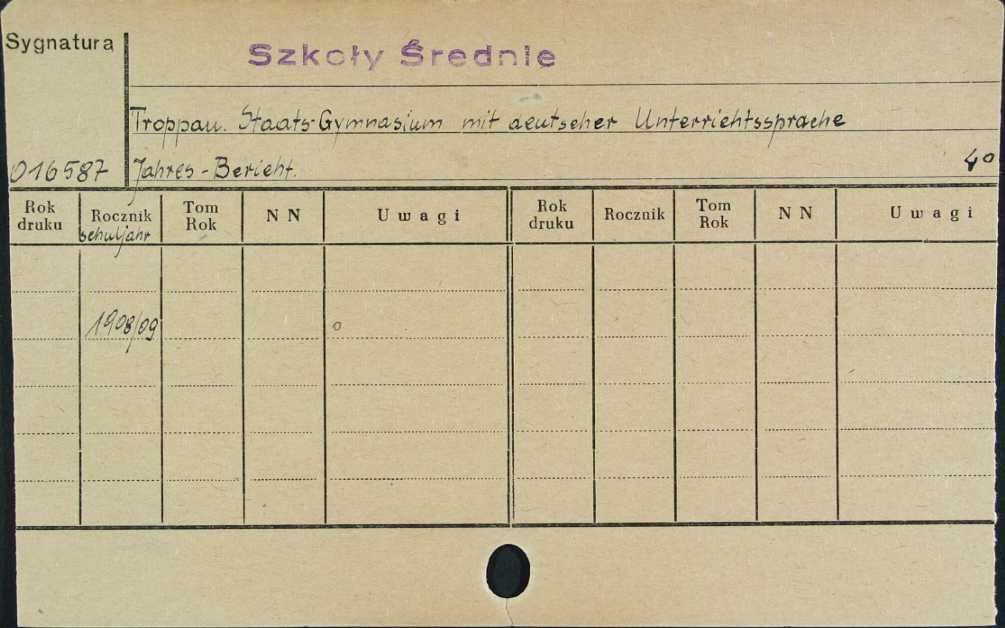 Sygnatura
Szkoły Średnie
Troppau. Staats-Gymnasium mit deutscher Unterrichtssprache
016587 Jahres-Bericht. 4°
Rok druku Rocznik schuljahr Tom Rok N N Uwagi Rok druku Rocznik Tom Rok N N Uwagi
1908/09 o